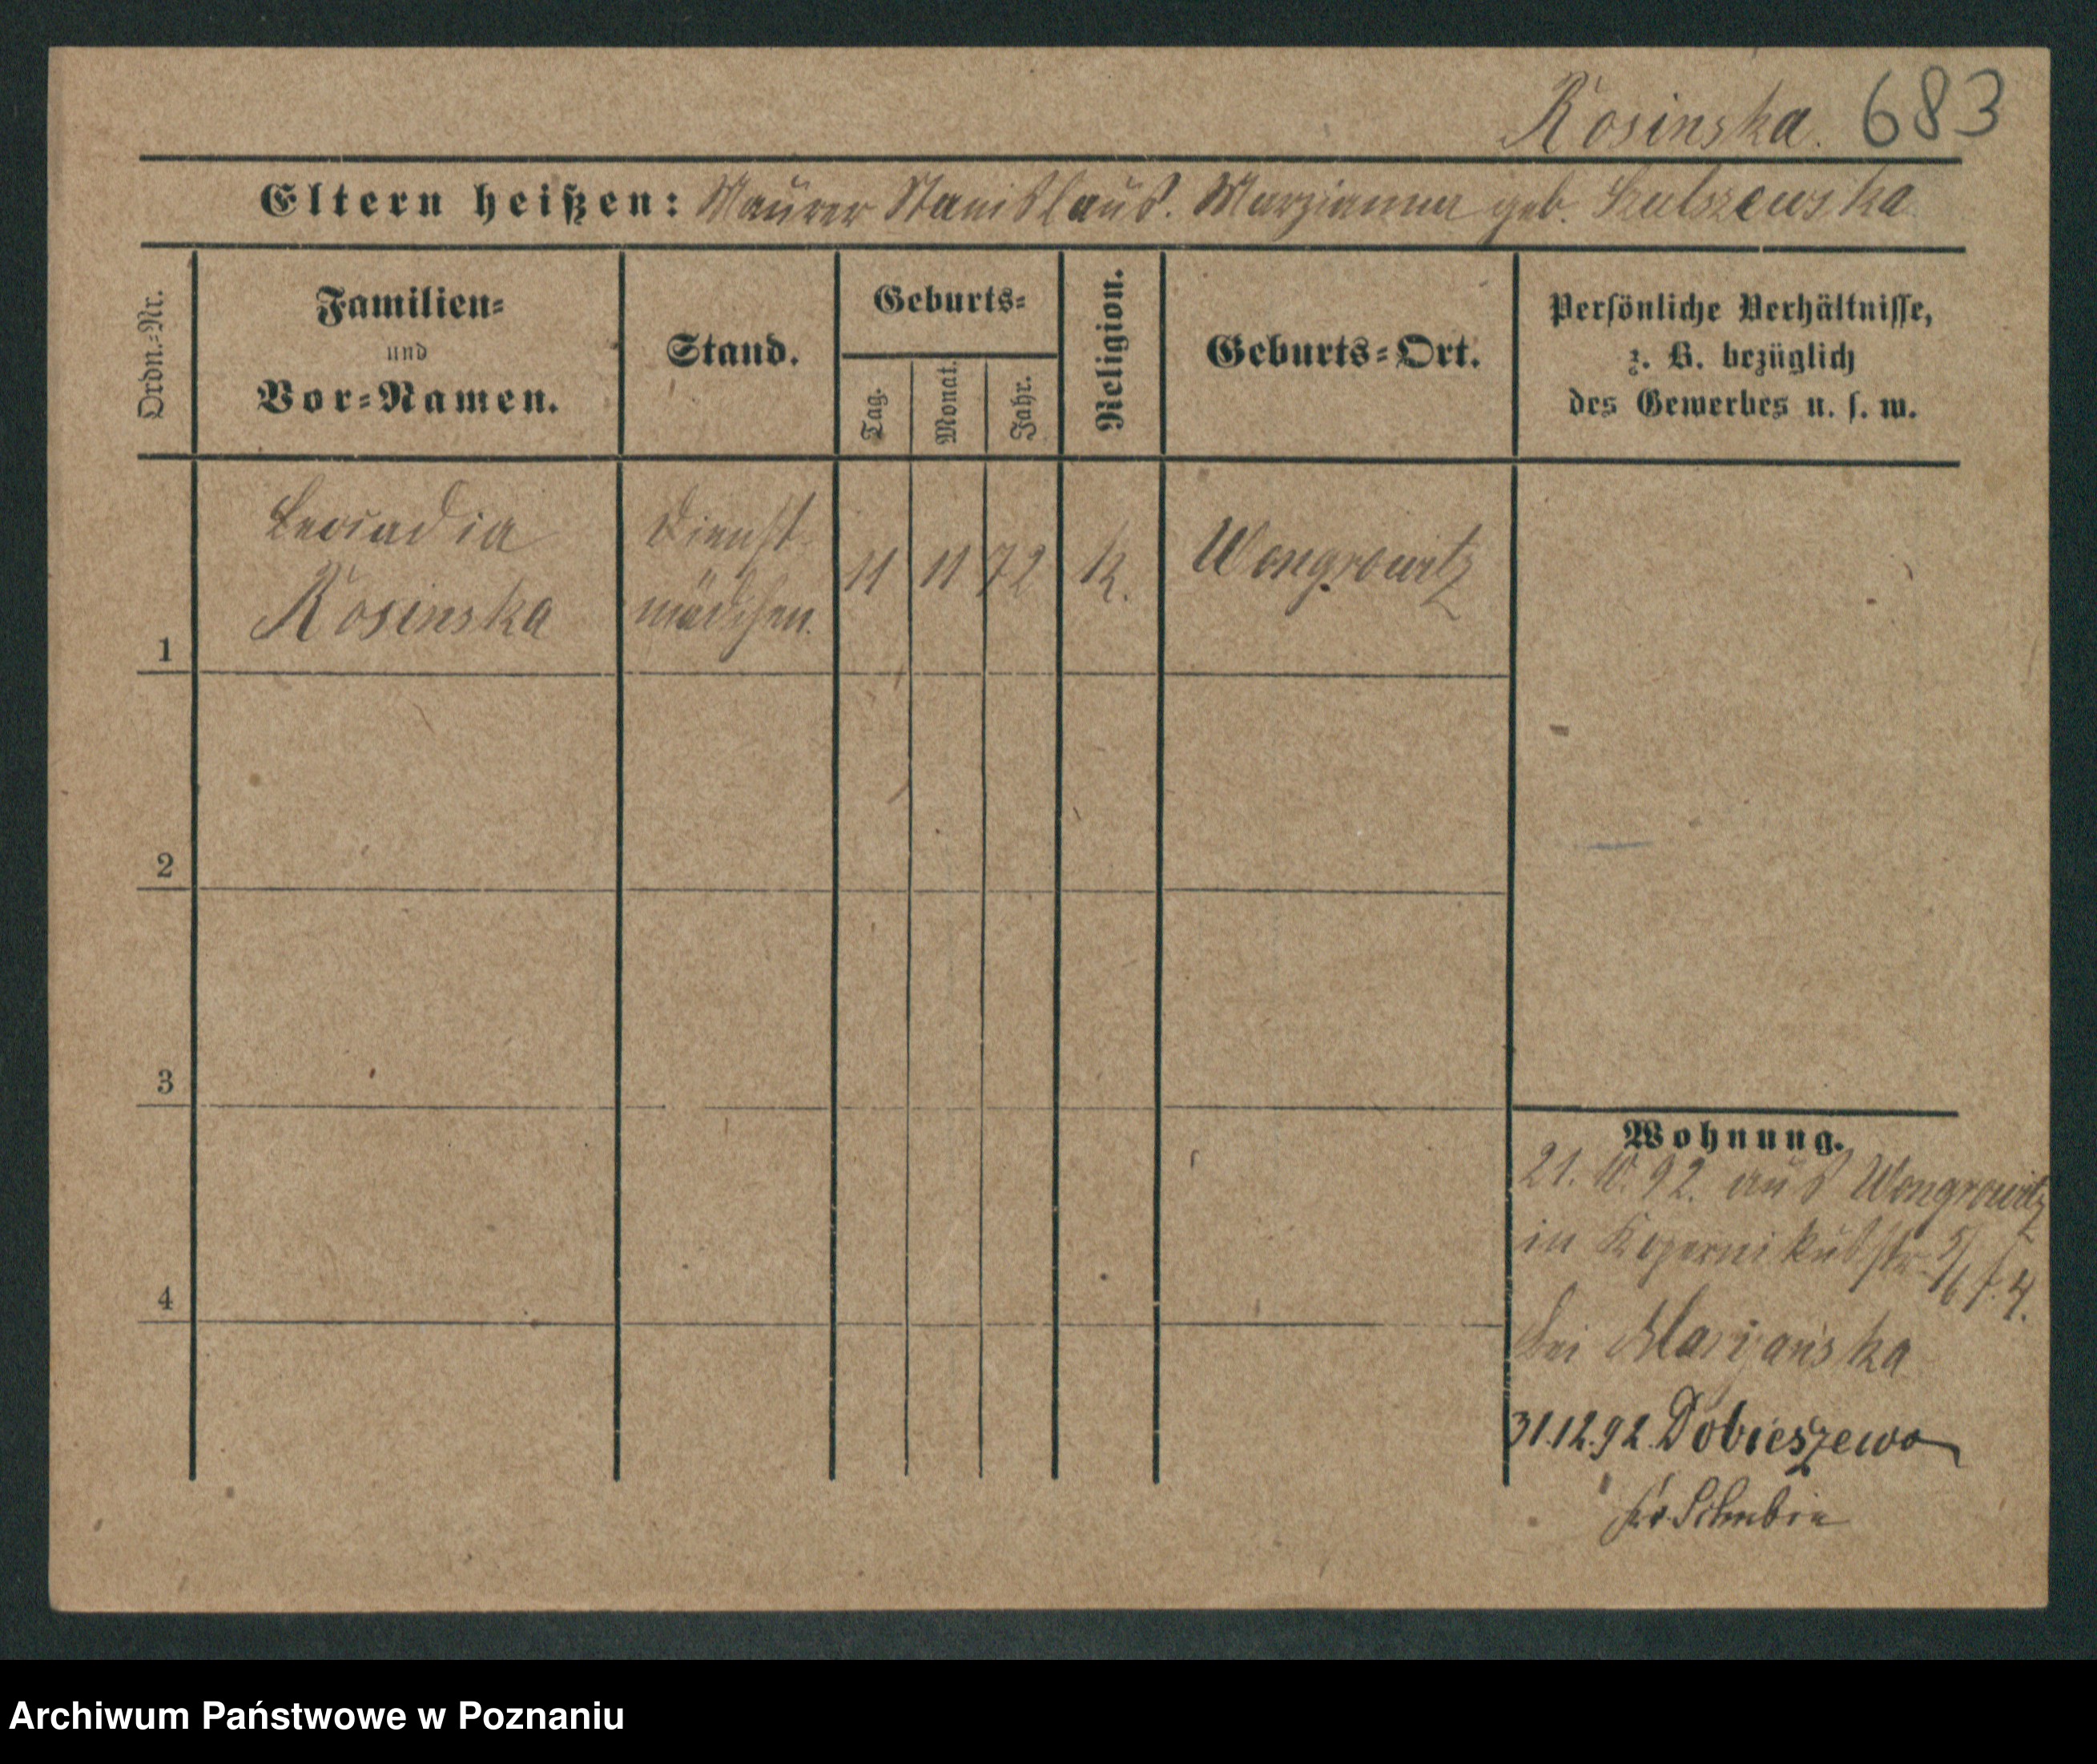 Rosinska. 683
Eltern heißen: Maurer Stanislaus. Marzianna geb.
Ordn.=Nr.
Familien=
und
Vor=Namen.
Stand.
Geburts=
Tag.
Monat.
Jahr.
Religion.
Geburts=Ort.
Persönliche Verhältnisse,
z. B. bezüglich
des Gewerbes u. s. w.
1
Leocadia
Rosinska
Dienst
mädchen.
11
11
72
K.
Wongrowitz
2
3
4
Wohnung.
21. 10. 92. aus Wongrowitz
in Kopernikusstr. 5/6
bei
31.12.92. Dobieszewo
Kr. Schubin
Archiwum Państwowe w Poznaniu